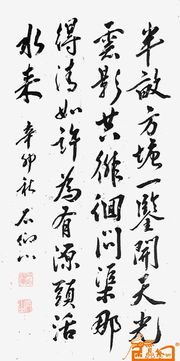 半畝方塘一鑒開天光
雲影共徘徊問渠那
得清如許為有源頭活
水來
辛卯秋石